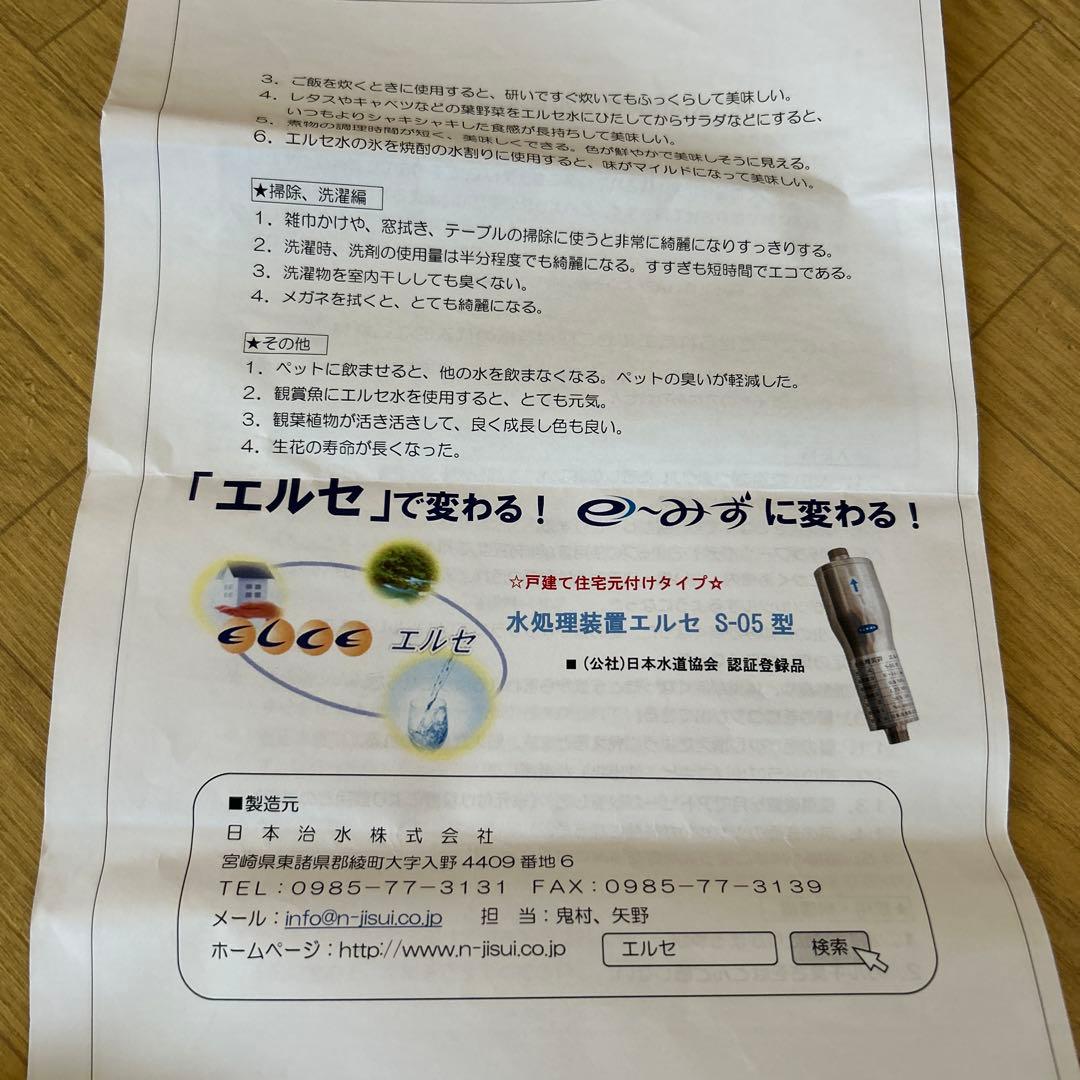 3．ご飯を炊くときに使用すると、研いですぐ炊いてもふっくらして美味しい。
4．レタスやキャベツなどの葉野菜をエルセ水にひたしてからサラダなどにすると、
いつもよりシャキシャキした食感が長持ちして美味しい。
5．煮物の調理時間が短く、美味しくできる。色が鮮やかで美味しそうに見える。
6．エルセ水の氷を焼酎の水割りに使用すると、味がマイルドになって美味しい。
★掃除、洗濯編
1．雑巾かけや、窓拭き、テーブルの掃除に使うと非常に綺麗になりすっきりする。
2．洗濯時、洗剤の使用量は半分程度でも綺麗になる。すすぎも短時間でエコである。
3．洗濯物を室内干ししても臭くない。
4．メガネを拭くと、とても綺麗になる。
★その他
1．ペットに飲ませると、他の水を飲まなくなる。ペットの臭いが軽減した。
2．観賞魚にエルセ水を使用すると、とても元気。
3．観葉植物が活き活きして、良く成長し色も良い。
4．生花の寿命が長くなった。
「エルセ」で変わる！ e～みず に変わる！
☆戸建て住宅元付けタイプ☆
水処理装置エルセ S-05型
■（公社）日本水道協会 認証登録品
エルセ
■製造元
日本治水株式会社
宮崎県東諸県郡綾町大字入野4409番地6
TEL：0985－77－3131 FAX：0985－77－3139
メール：info@n-jisui.co.jp 担 当：鬼村、矢野
ホームページ：http://www.n-jisui.co.jp エルセ 検索